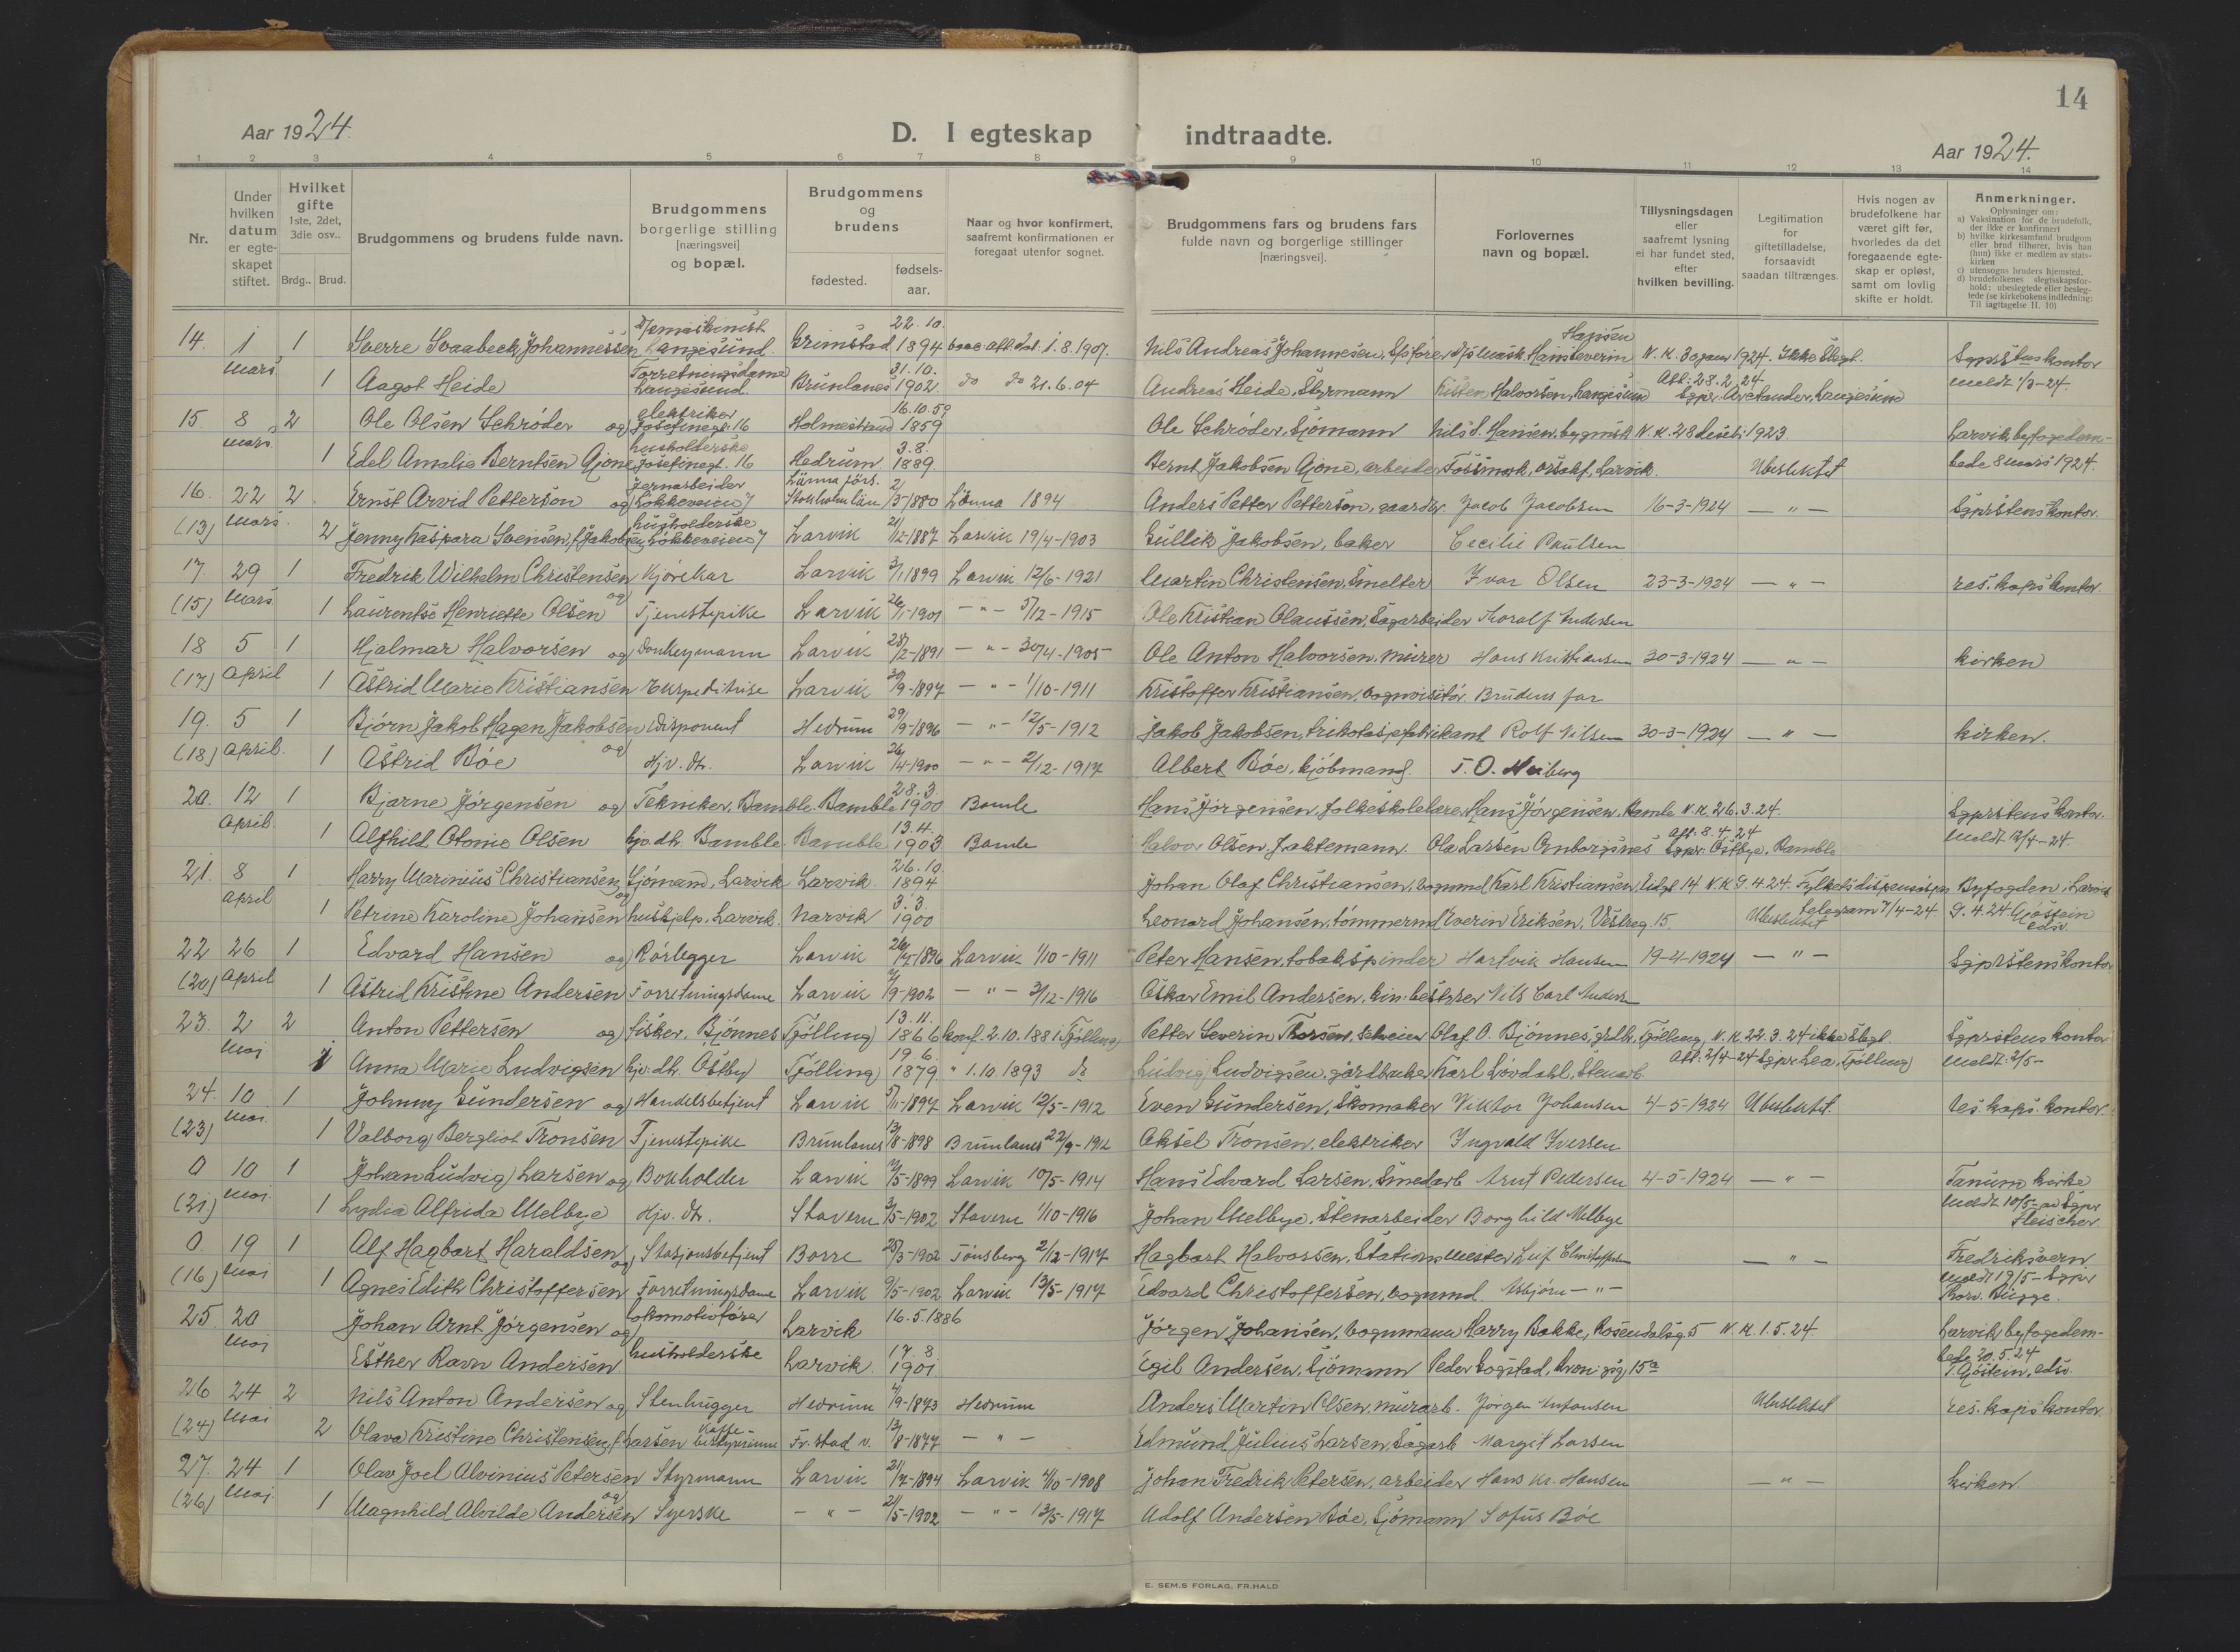 14
Aar 1924.
D. I egteskap indtraadte.
Aar 1924.
1 2 3 4 5 6 7 8 9 10 11 12 13 14
Nr.
Under hvilken datum er egteskapet stiftet.
Hvilket gifte 1ste, 2det, 3die osv..
Brdg.. Brud.
Brudgommens og brudens fulde navn.
Brudgommens borgerlige stilling [næringsvei] og bopæl.
Brudgommens og brudens
fødested.
fødsels-aar.
Naar og hvor konfirmert, saafremt konfirmationen er foregaat utenfor sognet.
Brudgommens fars og brudens fars fulde navn og borgerlige stillinger [næringsvei].
Forlovernes navn og bopæl.
Tillysningsdagen eller saafremt lysning ei har fundet sted, efter hvilken bevilling.
Legitimation for giftetilladelse, forsaavidt saadan tiltrænges.
Hvis nogen av brudefolkene har været gift før, hvorledes da det foregaaende egteskap er opløst, samt om lovlig skifte er holdt.
Anmerkninger.
Oplysninger om:
a) Vaksination for de brudefolk, der ikke er konfirmert
b) hvilke kirkesamfund brudgom eller brud tilhører, hvis han (hun) ikke er medlem av statskirken
c) utensogns bruders hjemsted.
d) brudefolkenes slegtsskapsforhold: ubeslegtede eller beslegtede (se kirkebokens indledning: Til iagttagelse II. 10)
14. 1 mars 1 Sverre Svaabeck Johannessen Langesund. Grimstad 22.10. 1894 1.8.1907. Nils Andreas Johannesen, Hans Severin Hansen N.K. 30 janr 1924. Ikke Slegt. Sgprstens kontor
1 Aagot Heide Forretningsdame Langesund. Brunlanes 31.10. 1902 do do 21.6.04 Andreas Heide, Styrmann Halvorsen, Langesund Att: 28.2.24 Sgpr. Arctander, Langesund meldt 1/3-24.
15. 8 mars 2 Ole Olsen Schröder og elektriker Josefinegt. 16 Holmestrand 16.10.59 1859 Ole Schröder, Sjömann Nils S. Hansen, bygmstr N.K. 28 desebr 1923 Larvik byfogedem-
1 Edel Amalia Berntsen Gjone husholderske Josefinegt. 16 Hedrum 3.8. 1889 Bernt Jakobsen Gjone, arbeider Larvik. Ubeslektet bede 8 mars 1924.
16. 22 mars 2 Ernst Arvid Petterson og jernarbeider Lökkeveien 7 Länna förs. Stockholm län 2/5-1880 Länna 1894 Anders Petter Petterson, gaardbr. Jacob Jacobsen 16-3-1924 — " — Sgprstens kontor.
(13) 2 Jenny Kaspara Svensen, f. Jakobsen husholderske Lökkeveien 7 Larvik 21/12-1887 Larvik 19/4-1903 Gullik Jakobsen, baker Cecilie Paulsen
17. 29 mars 1 Fredrik Wilhelm Christensen og Kjörekar Larvik 3/1 1899 Larvik 12/6-1921 Martin Christensen, Smelter Ivar Olsen 23-3-1924 — " — res. kaps kontor.
(15) 1 Laurentse Henriette Olsen Tjenestepike Larvik 26/1-1901 — " — 5/12-1915 Ole Kristian Olaussen, Sagarbeider Thoralf Andersen
18 5 april 1 Hjalmar Halvorsen og Donkeymann Larvik 28/2-1891 — " — 30/4-1905 Ole Anton Halvorsen, murer Hans Kristiansen 30-3-1924 — " — kirken
(17) 1 Astrid Marie Kristiansen Ekspeditrise Larvik 20/9-1897 — " — 1/10-1911 Kristoffer Kristiansen, vognvisitör. Brudens far
19. 5 april. 1 Björn Jakob Hagen Jakobsen og Disponent Hedrum 29/9-1896 — " — 12/5-1912 Jakob Jakobsen, trikotasjefabrikant Rolf Nilsen 30-3-1924 — " — kirken.
(18) 1 Astrid Böe Hjv. dtr. Larvik 26/4-1900 — " — 2/12-1917 Albert Böe, kjöbmand. T. O. Heiberg
20. 12 april. 1 Bjarne Jörgensen og Tekniker, Bamble. Bamble 28.3. 1900 Bamle Hans Jörgensen, folkeskolelærer Hans Jörgensen, Bamle N.K. 26.3.24. Sgprstens kontor.
1 Alfhild Otonie Olsen hjv. dtr. Bamble. Bamble 13.4. 1903 Bamle Halvor Olsen, Jaktemann. Ola Larsen Att: 8.4.24 Sgpr. Östbye, Bamble meldt 12/4-24.
21. 8 april 1 Harry Marinius Christiansen og Sjömand, Larvik Larvik. 26.10. 1894 Johan Olaf Christiansen, vognmd Karl Kristiansen, 14 N.K. 9.4.24. Fylkets Byfogden i Larvik
1 Petrine Karoline Johansen hushjelp, Larvik. Narvik 3.3. 1900 Leonard Johansen, tömmermd Everin Eriksen, Vestreg. 15. Ubeslektet telegram 7/4-24 9.4.24 Gjöstein edsv.
22 26 april 1 Edvard Hansen og Rörlegger Larvik 26/7-1896 Larvik 1/10-1911 Peter Hansen, tobakspinder Hartvik Hansen 19-4-1924 — " — Sgprstens kontor
(20) 1 Astrid Kristine Andersen Forretningsdame Larvik 9-1902 — " — 3/12-1916 Oskar Emil Andersen, kin. bestyrer Nils Carl Andersen
23. 2 Mai 2 Anton Pettersen og fisker, Bjönnes Tjölling 13.11. 1866 konf. 2.10.1881 Tjölling Petter Severin Thorsen, Olaf O. Bjönnes, grdbr, Tjölling N.K. 22.3.24 ikke Slegt. Sgprstens kontor
1 Anna Marie Ludvigsen hjv. dtr. Östby Tjölling 19.6. 1879 " 1.10.1893 do Ludvig Ludvigsen, gårdbruker Karl Lövdahl, Stenarb. Att: 2/4-24 Sgpr. Lea, Tjölling meldt: 2/5-
24. 10 mai. 1 Johnny Gundersen og Handelsbetjent Larvik 5/11-1897 Larvik 12/5-1912 Even Gundersen, Skomaker Viktor Johansen 4-5-1924 Ubeslektet. res. kaps. kontor.
(23) 1 Valborg Bergliot Tronsen Tjenestepike Brunlanes 13/8-1898 Brunlanes 22/9-1912 Aksel Tronsen, elektriker Ingvald Iversen
0 10 mai 1 Johan Ludvig Larsen og Bokholder Larvik 5-1899 Larvik 10/5-1914 Hans Edvard Larsen, Smedarb Arnt Pedersen 4-5-1924 — " — Tanum kirke
(21) 1 Lydia Alfrida Melbye Hjv. dtr. Stavern 3/5-1902 Stavern 1/10-1916 Johan Melbye, Stenarbeider Borghild Melbye meldt 10/5- av Sgpr Fleischer.
0. 19 Mai 1 Alf Hagbart Haraldsen og Stasjonsbetjent Borre 28/3-1902 Tönsberg 2/12-1917 Hagbart Halvorsen, Stationsmester Leif Christoffersen — " — Fredriksvern
(16) 1 Agnes Edith Christoffersen Forretningsdame Larvik 9/5-1902 Larvik 13/5-1917 Edvard Christoffersen, vognmd. Asbjörn — " — meldt 19/5- Sgpr Thorv. Bugge.
25. 20 mai Johan Arnt Jörgensen og lokomotivförer Larvik 16.5.1886 Jörgen Johansen, vognmann Harry Bakke, Rosendalsg. 5 N.K. 1.5.24. Larvik byfogedem-
Esther Ravn Andersen husholderske Larvik. 17.8. 1901 Egil Andersen, Sjömann Peder Bogstad, 15a bede 20.5.24 Gjöstein, edsv.
26 24 Mai 2 Nils Anton Andersen og Stenhugger Hedrum 9-1873 Hedrum Anders Martin Olsen, murarb. Jörgen Antonsen Ubeslektet res. kaps kontor.
(24) 2 Olava Kristine Christensen, f. Larsen Kaffebestyrerinne Fr. stad v. 13/8-1877 — " — Edmund Julius Larsen, Sagarb Margit Larsen
27. 24 Mai. 1 Olav Joel Alvinius Petersen og Styrmann Larvik 21/7-1894 Larvik 4/10-1908 Johan Fredrik Petersen, arbeider Hans Kr. Hansen — " — kirken.
(26) 1 Magnhild Alvilde Andersen Syerske — " — 21/5-1902 — " — 13/5-1917 Adolf Andersen Böe, Sjömann Sofus Böe
E. SEM.S FORLAG, FR.HALD